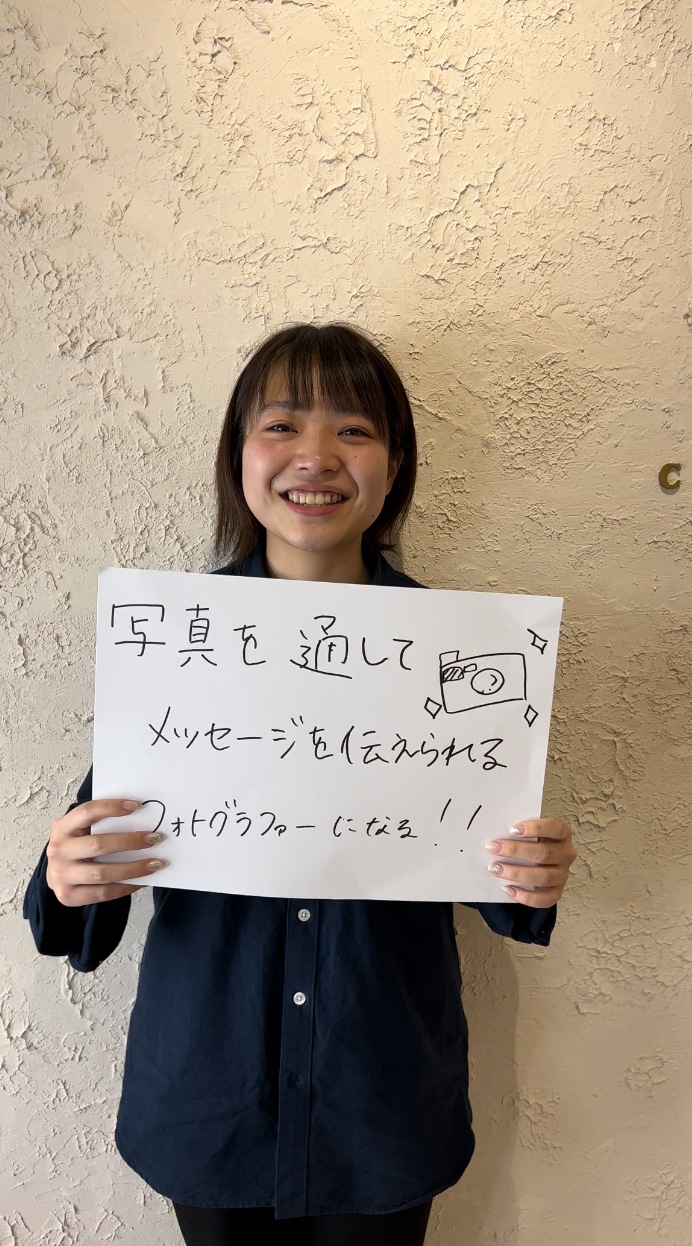 写真を通して
メッセージを伝えられる
フォトグラファーになる!!
C